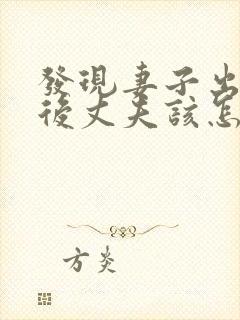 發現妻子出
後丈夫該怎
方炎